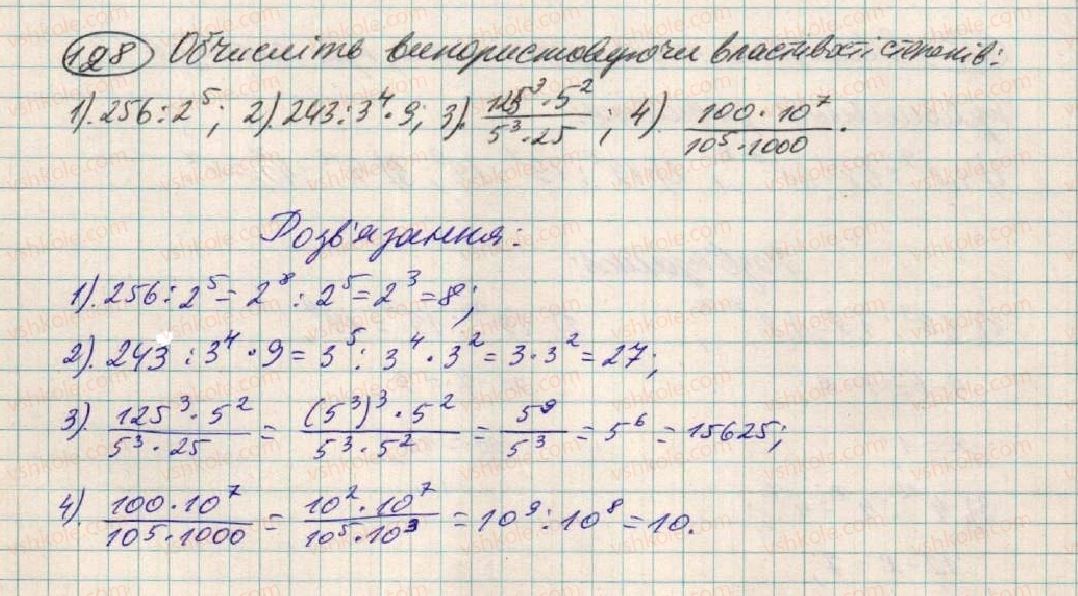 128 Обчисліть використовуючи властивості степенів:
1). 256 : 2⁵; 2). 243 : 3⁴ · 9; 3). (125³ · 5²)/(5³ · 25); 4) (100 · 10⁷)/(10⁵ · 1000).
Розв'язання:
1). 256 : 2⁵ = 2⁸ : 2⁵ = 2³ = 8;
2). 243 : 3⁴ · 9 = 3⁵ : 3⁴ · 3² = 3 · 3² = 27;
3). (125³ · 5²)/(5³ · 25) = ((5³)³ · 5²)/(5³ · 5²) = 5⁹/5³ = 5⁶ = 15625;
4). (100 · 10⁷)/(10⁵ · 1000) = (10² · 10⁷)/(10⁵ · 10³) = 10⁹ : 10⁸ = 10.
vshkole.com